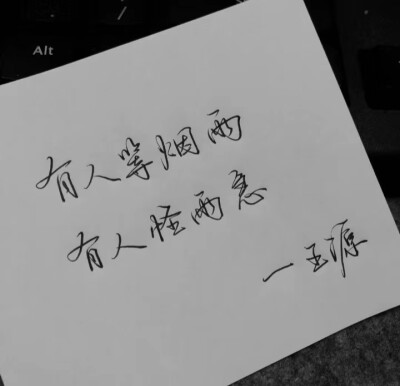 Alt
/
有人等烟雨
有人怪雨急
一王源